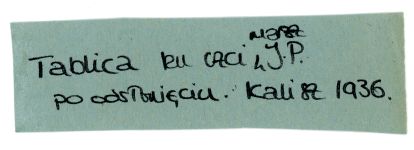 Tablica ku czci marsz J.P.
po odsłonięciu. Kalisz 1936.